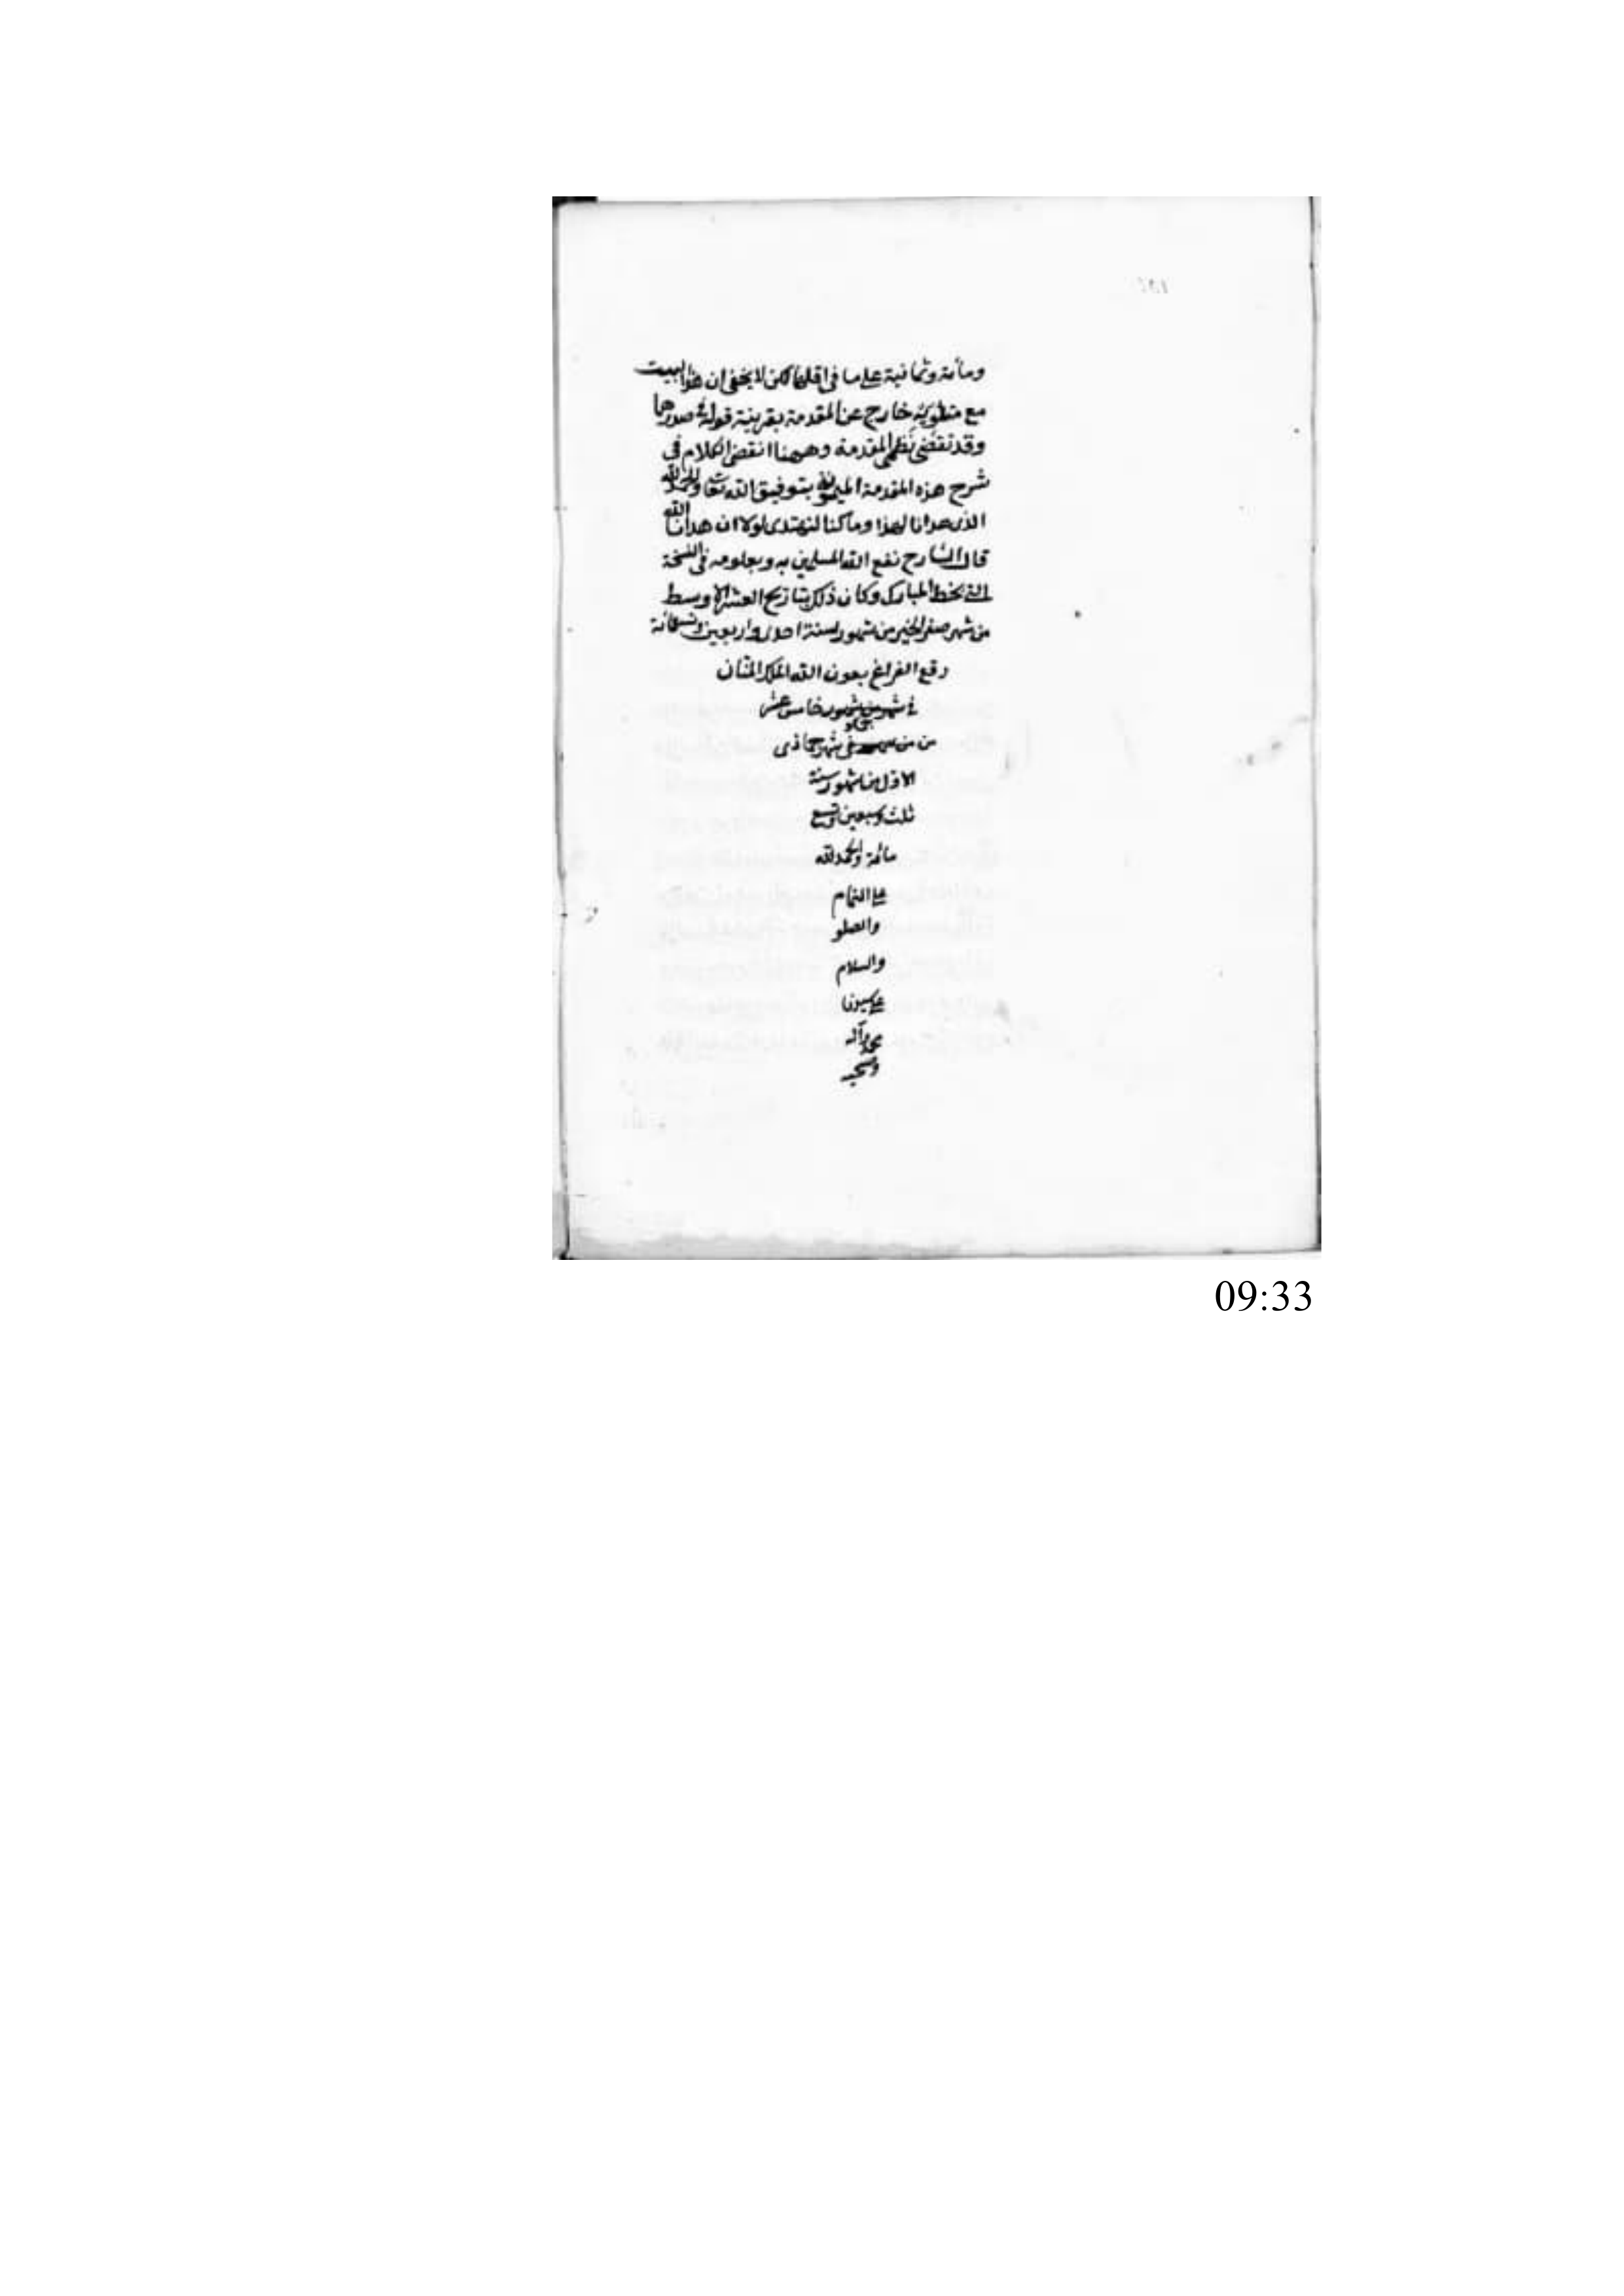 ومائة وثمانية على ما في اقلها لكن لا يخفى ان هذا البيت
مع منطويه خارج عن المقدمة بقرينة قوله في صدرها
وقد تقضى نظمي المقدمة وههنا انقضى الكلام في
شرح هذه المقدمة الميمونة بتوفيق الله تعا والحمد لله
الذي هدانا لهذا وما كنا لنهتدي لولا ان هدانا الله
قال الشارح نفع الله المسلمين به وبعلومه في النسخة
التي بخطه المبارك وكان ذلك بتاريخ العشر الاوسط
من شهر صفر الخير من شهور سنة احدى واربعين وتسعمائة
وقع الفراغ بعون الله الملك المنان
في شهر من شهور خامس عشر
من في شهر جمادى
الاول من شهور سنة
ثلث وسبعين وتسع
مائة والحمد لله
على التمام
والصلو
والسلام
على سيدنا
محمد وآله
وصحبه
09:33